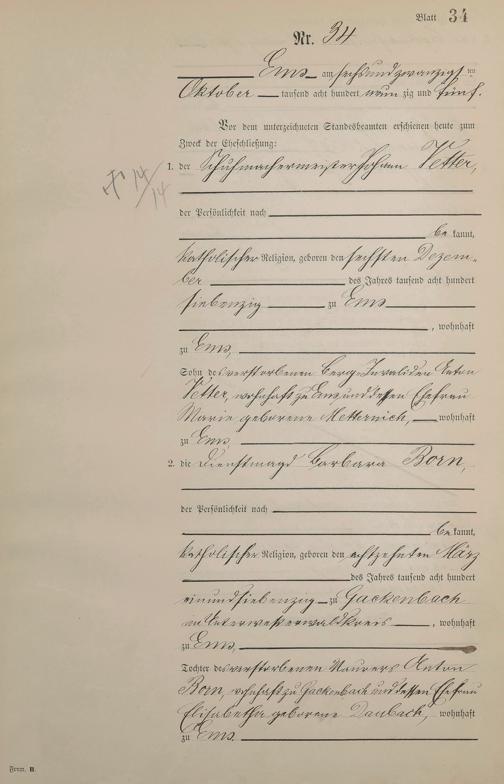 Blatt 34
Nr. 34
Ems am sechsundzwanzigsten
Oktober tausend acht hundert neun zig und fünf.
Vor dem unterzeichneten Standesbeamten erschienen heute zum
Zweck der Eheschließung:
1. der Schuhmachermeister Johann Vetter,
der Persönlichkeit nach
be kannt,
katholischer Religion, geboren den sechsten Dezem-
ber des Jahres tausend acht hundert
siebenzig zu Ems
, wohnhaft
zu Ems,
Sohn des verstorbenen Berg-Invaliden Anton
Vetter, wohnhaft zu Ems und dessen Ehefrau
Marie geborene Metternich, wohnhaft
zu Ems.
2. die Dienstmagd Barbara Born,
der Persönlichkeit nach
be kannt,
katholischer Religion, geboren den achtzehnten März
des Jahres tausend acht hundert
einundsiebenzig zu Gackenbach
im Unterwesterwaldkreis , wohnhaft
zu Ems,
Tochter des verstorbenen Maurers Anton
Born, wohnhaft zu Gackenbach und dessen Ehefrau
Elisabetha geborene Daubach, wohnhaft
zu Ems.
Form. B.